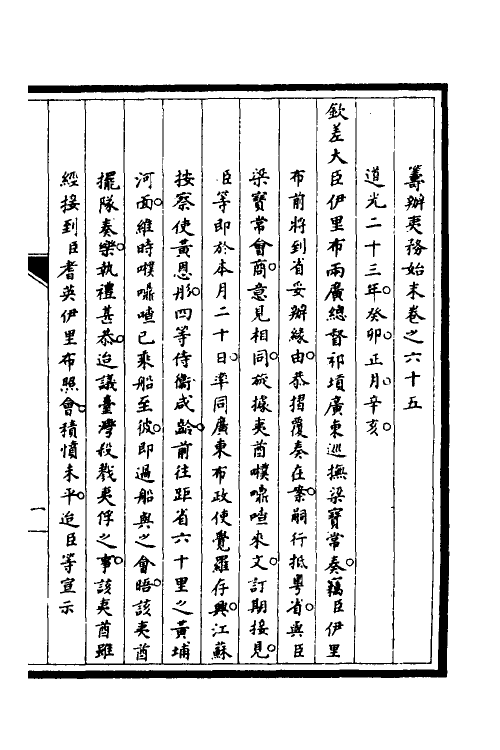 籌辦夷務始末卷之六十五
道光二十三年。癸卯。正月。辛亥。
欽差大臣伊里布兩廣總督祁𡎴廣東巡撫梁寶常奏。竊臣伊里
布前將到省妥辦緣由。恭摺覆奏在案。嗣行抵粵省。與臣
梁寶常會商。意見相同。旋據夷酋噗嘯喳來文。訂期接見。
臣等即於本月二十日。率同廣東布政使覺羅存興。江蘇
按察使黃恩彤。四等侍衛咸齡。前往距省六十里之黃埔
河面。維時噗嘯喳已乘船至彼。即過船與之會晤。該夷酋
擺隊奏樂。執禮甚恭。迨議臺灣殺戮夷俘之事。該夷酋雖
經接到臣耆英伊里布照會。積憤未平。迨臣等宣示
一